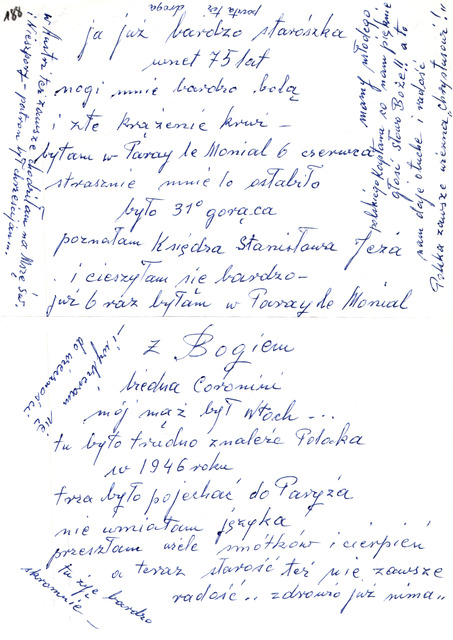 188
poczta też droga
ja już bardzo staroszka
wnet 75 lat
nogi mnie bardzo bolą
i złe krążenie krwi –
byłam w Paray le Monial 6 czerwca
strasznie mnie to osłabiło
było 31° gorąca
poznałam Księdza Stanisława Jeża
i cieszyłam się bardzo –
już 6 raz byłam w Paray le Monial
w Austri też zawsze chodziłam na Mszę Św.
i Nieszpory – potem był chrześcijan.
mamy młodego
polskiego Kapłana co nam pięknie
głosi słowo Boże!! a to
nam daje otuchę i radość
Polska zawsze wierna „Chrystusowi"!!
Z Bogiem
biedna Coronini
mój mąż był Włoch - - -
tu było trudno znaleźć Polaka
w 1946 roku
trza było pojechać do Paryża
nie umiałam języka
przeszłam wiele smótków i cierpień
a teraz starość też nie zawsze
radość.. zdrowio już nima"
i wybieram
się
do wieczności
tu żyję bardzo
skromnie –